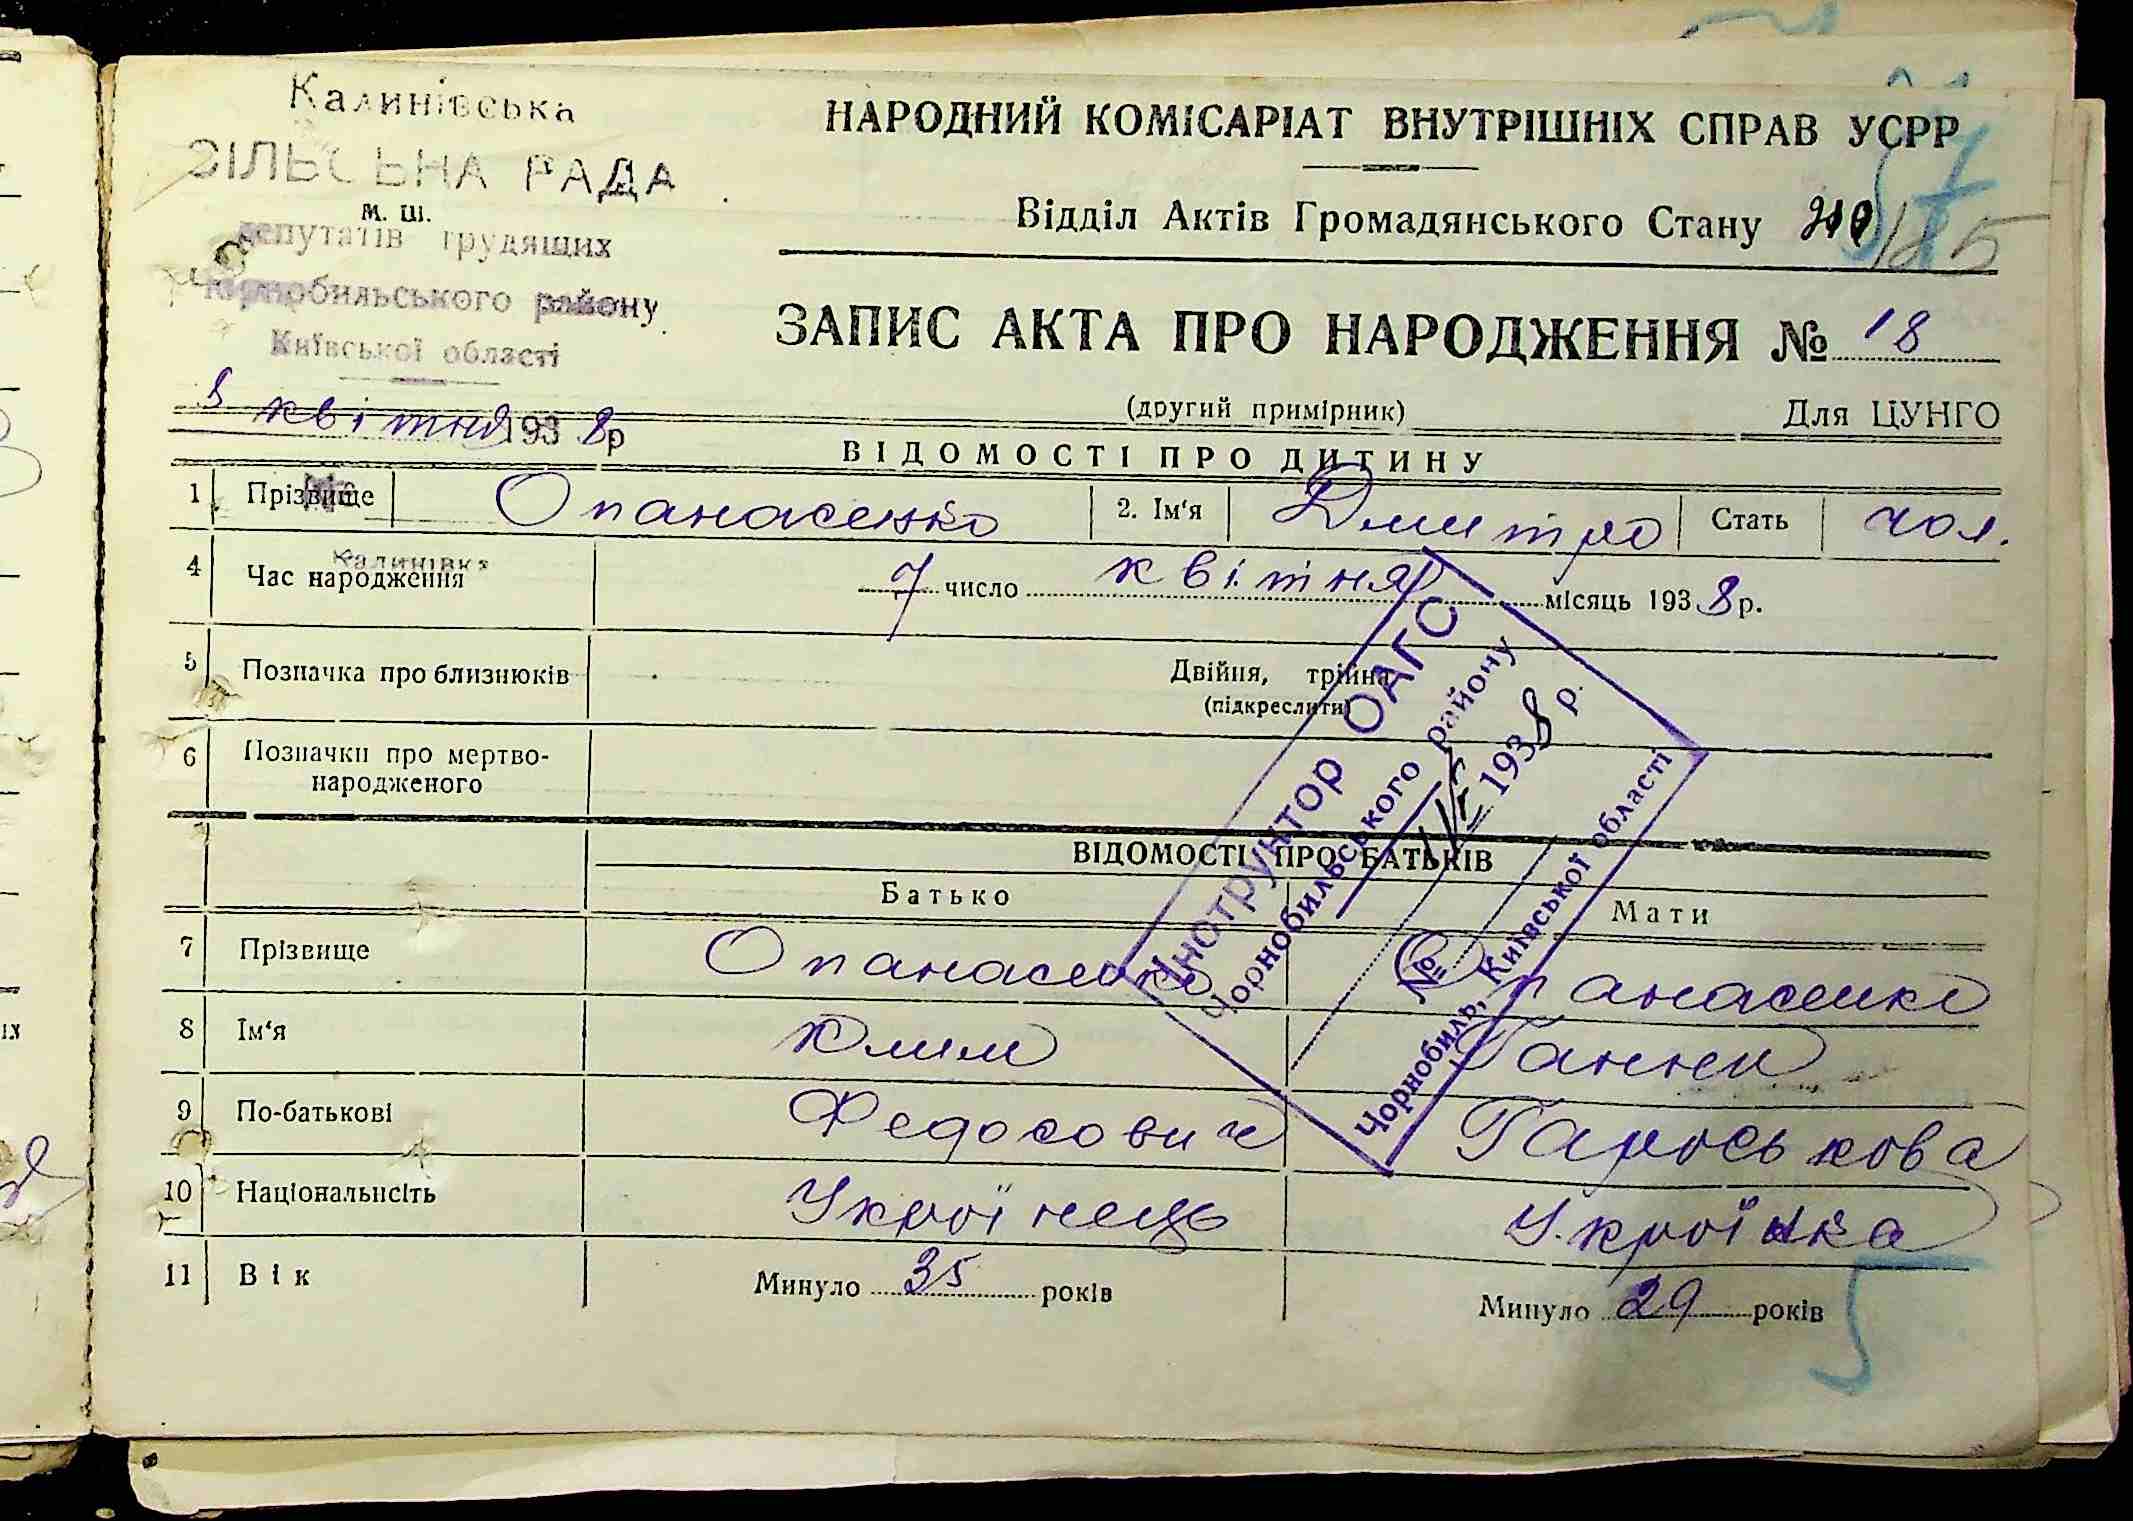 Калинівська
СІЛЬСЬКА РАДА
м. ш.
депутатів трудящих
Чорнобильського району
Київської області
8 квітня 1938 р
м.
Калинівка
НАРОДНИЙ КОМІСАРІАТ ВНУТРІШНІХ СПРАВ УСРР
Відділ Актів Громадянського Стану
ЗАПИС АКТА ПРО НАРОДЖЕННЯ № 18
(другий примірник) Для ЦУНГО
ВІДОМОСТІ ПРО ДИТИНУ
1 Прізвище Опанасенко 2. Ім‘я Дмитро Стать чол.
4 Час народження 7 число квітня місяць 1938 р.
5 Позначка про близнюків Двійня, трійня
(підкреслити)
6 Позначки про мертво-
народженого
Інструктор ОАГС
Чорнобильського району
193 8 р.
№
Чорнобиль, Київської області
ВІДОМОСТІ ПРО БАТЬКІВ
Батько Мати
7 Прізвище Опанасенко Опанасенко
8 Ім‘я Клим Ганни
9 По-батькові Федосович Гароськова
10 Національність Українець Українка
11 Вік Минуло 35 років Минуло 29 років
5